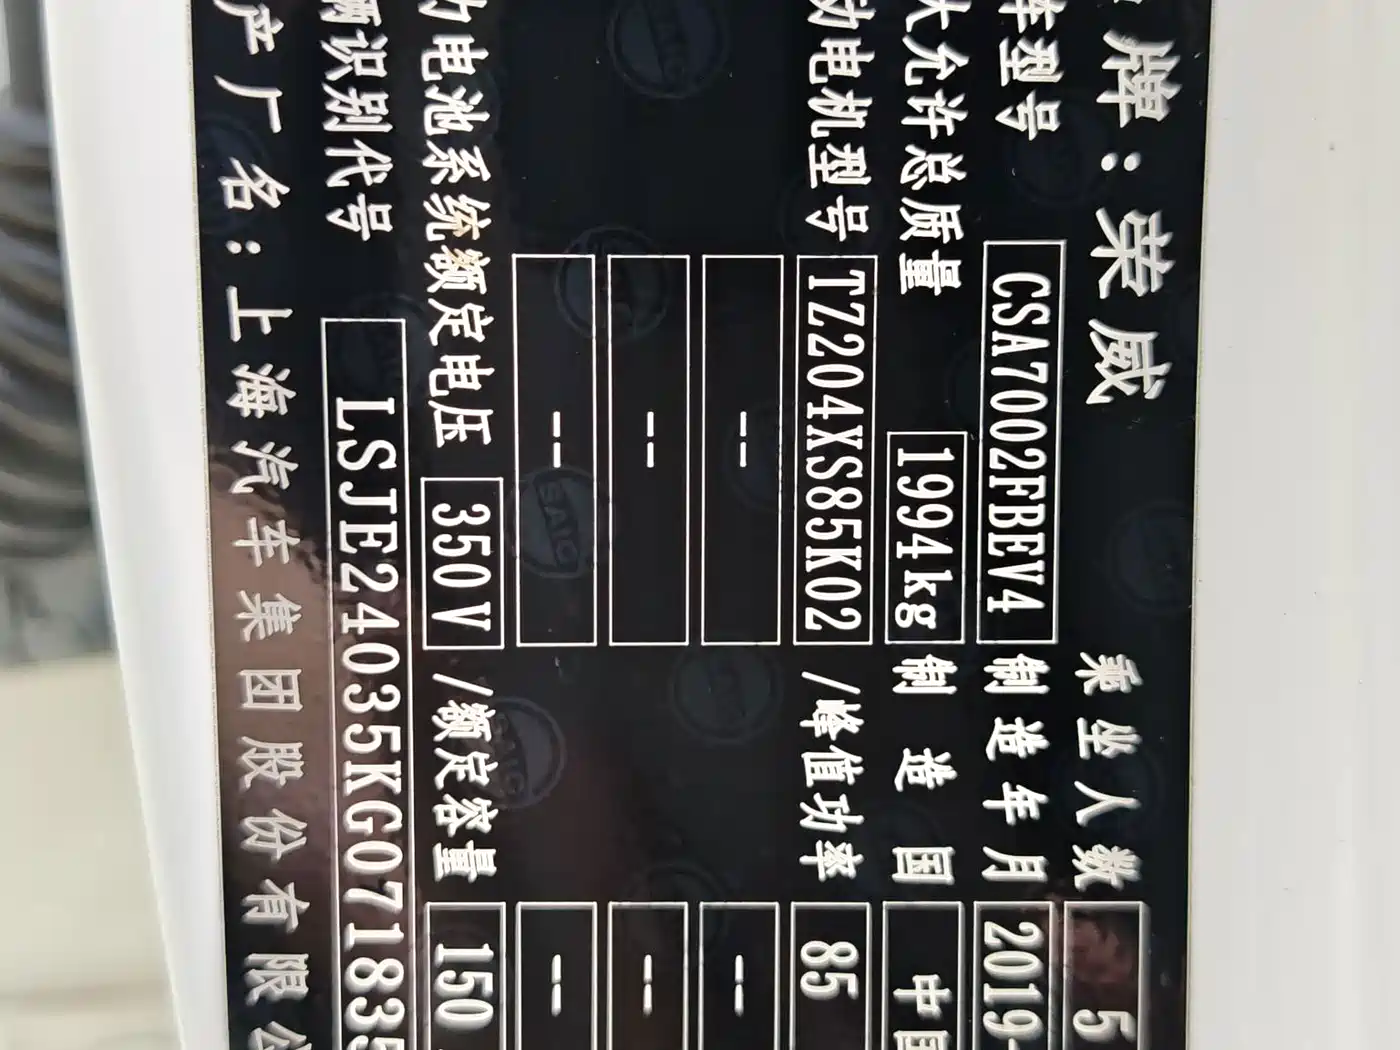 牌：荣威 乘坐人数 5
车型号 CSA7002FBEV4 制造年月 2019-
大允许总质量 1994kg 制造国 中国
动电机型号 TZ204XS85K02 /峰值功率 85
-- --
-- --
-- --
力电池系统额定电压 350V /额定容量 150
辆识别代号 LSJE24035KG071835
产厂名：上海汽车集团股份有限公
SAIC